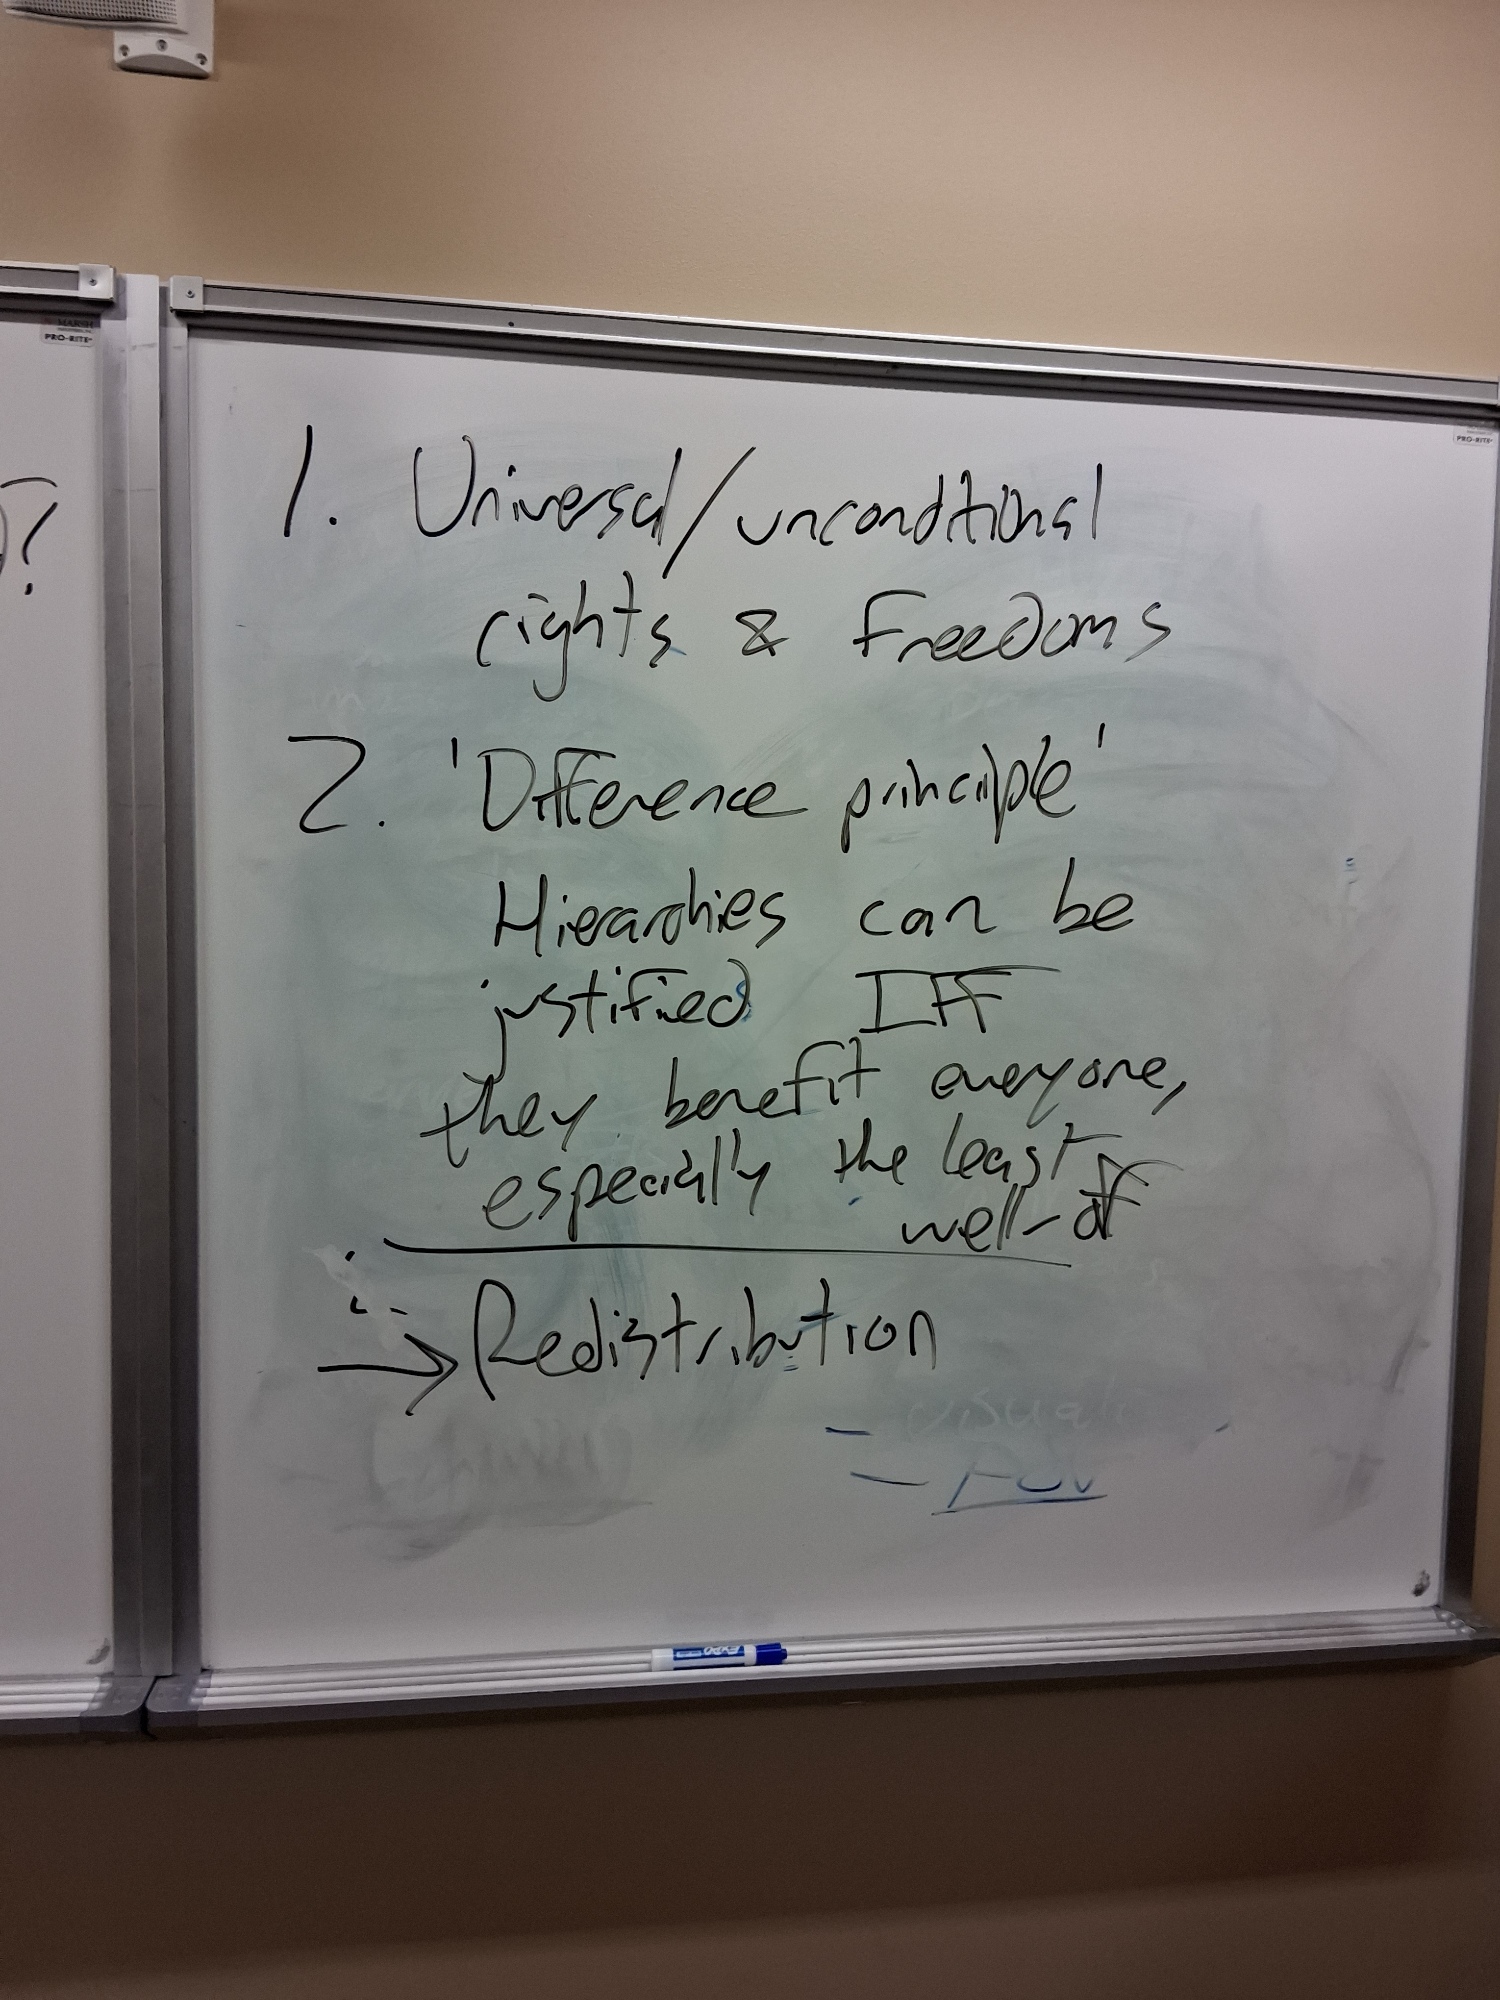 MARSH
PRO-RITE
?
PRO-RITE
1. Universal/unconditional
rights & Freedoms
2. 'Difference principle'
Hierarchies can be
justified IFF
they benefit everyone,
especially the least
well-off
∴
→ Redistribution
- visual
- POV
EXPO